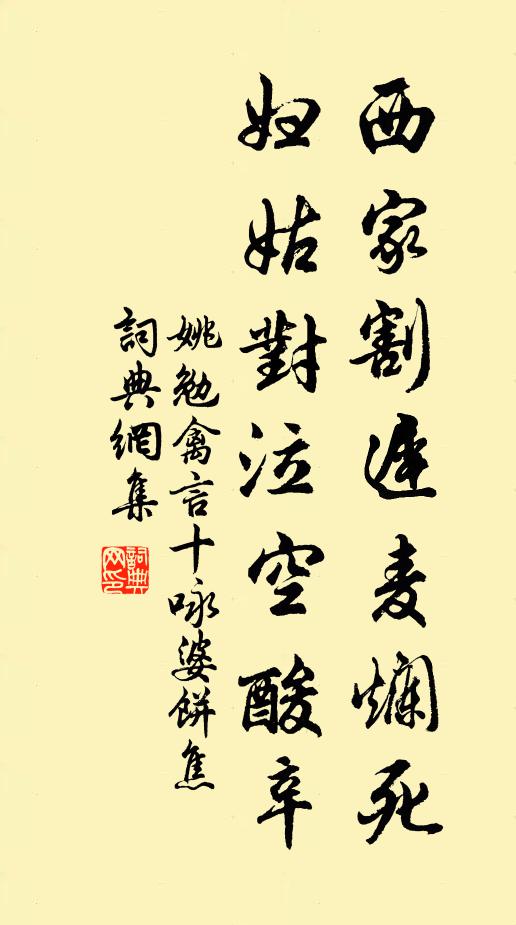 西家割遲麦爛死
妇姑對泣空酸辛
姚勉禽言十咏婆餅焦
詞典網集
詞典网印